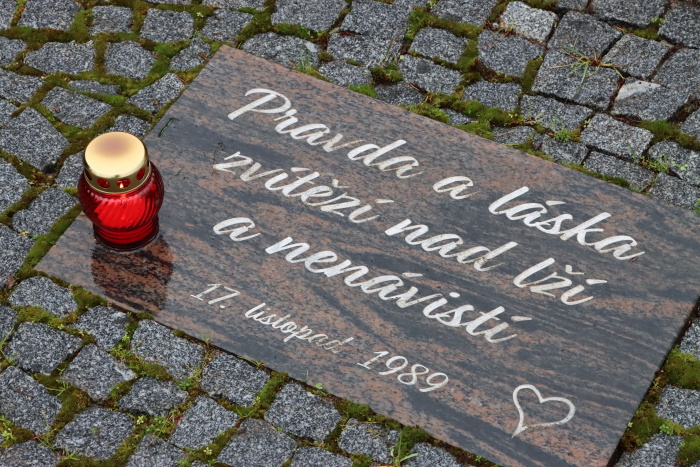 Pravda a láska
zvítězí nad lží
a nenávistí
17. listopad 1989